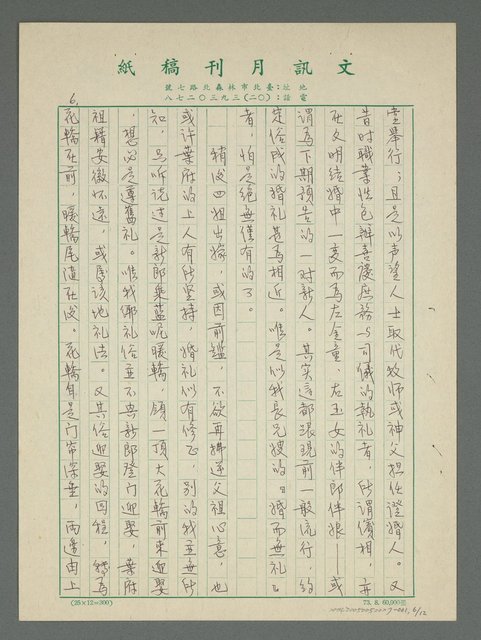 文訊月刊稿紙
地址：臺北市林森北路七號
電話：(〇二)三九三〇二七八
堂舉行；且是以声望人士取代牧師或神父担任證婚人。又
昔时職業性包辦喜慶庶務与司儀的執礼者，所謂儐相，亦
在文明结婚中一变而為左金童右玉女的伴郎伴娘——或
謂為下期預告的一对新人。其实這都跟現前一般流行，約
定俗成的婚礼甚為相近。唯是似我長兄嫂的『婚而無礼』
者，怕是絕無僅有的了。
稍後四姐出嫁，或因前鑑，不欲再拂逆父祖心意，也
或许葉府的上人有所坚持，婚礼似有修正，别的我至無所
知，只听说过是新郎乘蓝呢暖轎，領一頂大花轎前來迎娶
，想必是遵舊礼。唯我鄉礼俗並不興新郎登门迎娶，葉府
祖籍安徽怀远，或係該地礼法。又其俗迎娶的回程，轉為
花轎在前，暖轎尾隨在後。花轎自是门帘深垂，两邊由上
6.
(25×12=300)
73. 8. 60,000張